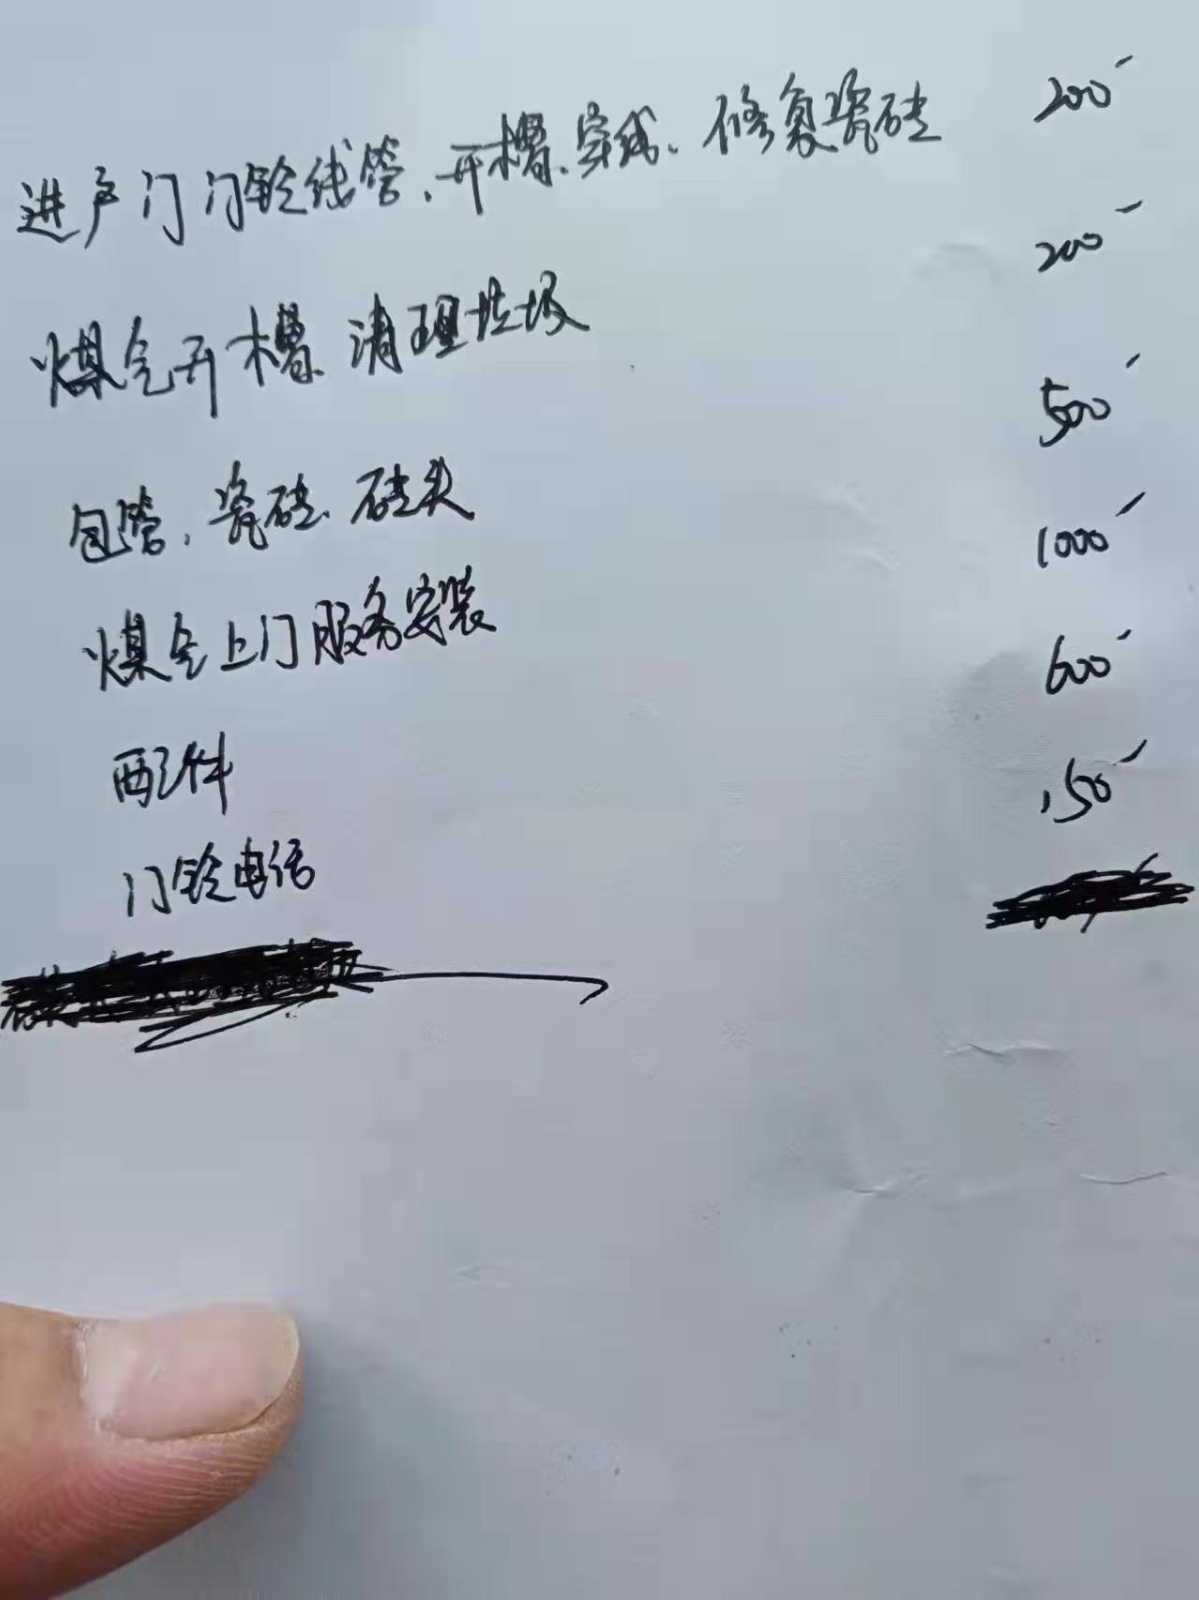 进户门门铃线管、开槽、穿线、修复瓷砖 200
煤气开槽、清理垃圾 200
包管、瓷砖、砖头 500
煤气上门服务安装 1000
配件 600
门铃电话 150